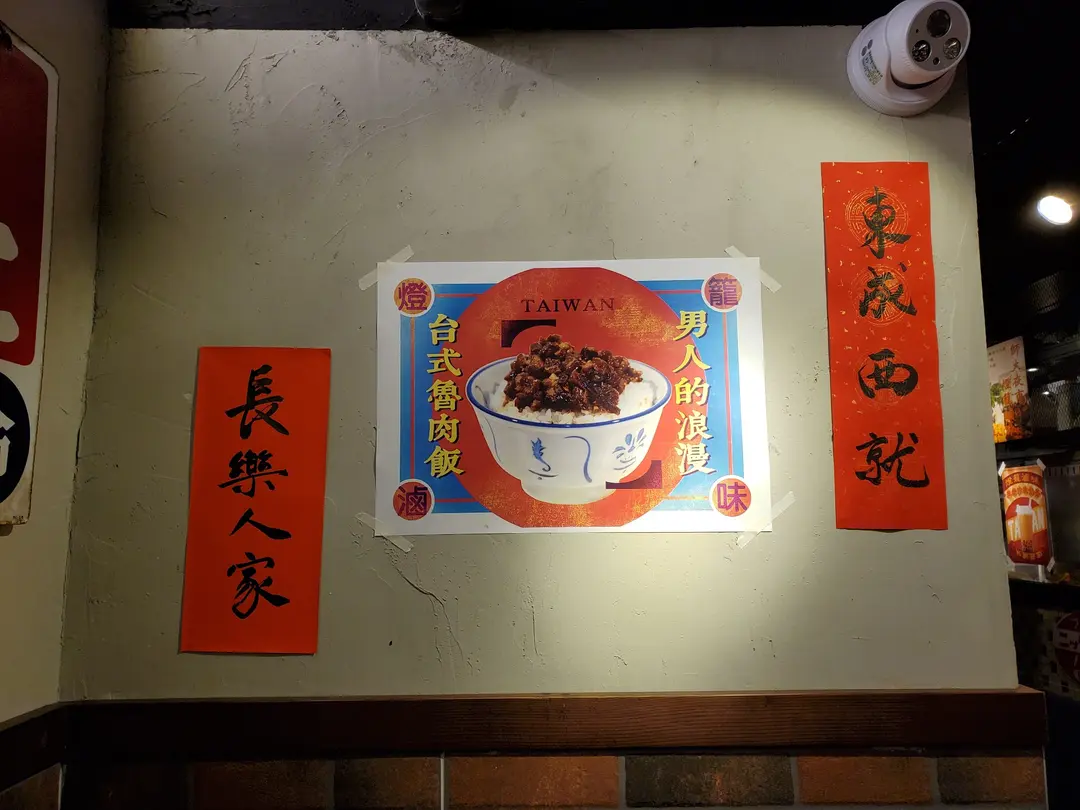 長樂人家
燈籠滷味
TAIWAN
男人的浪漫
台式魯肉飯
東成西就